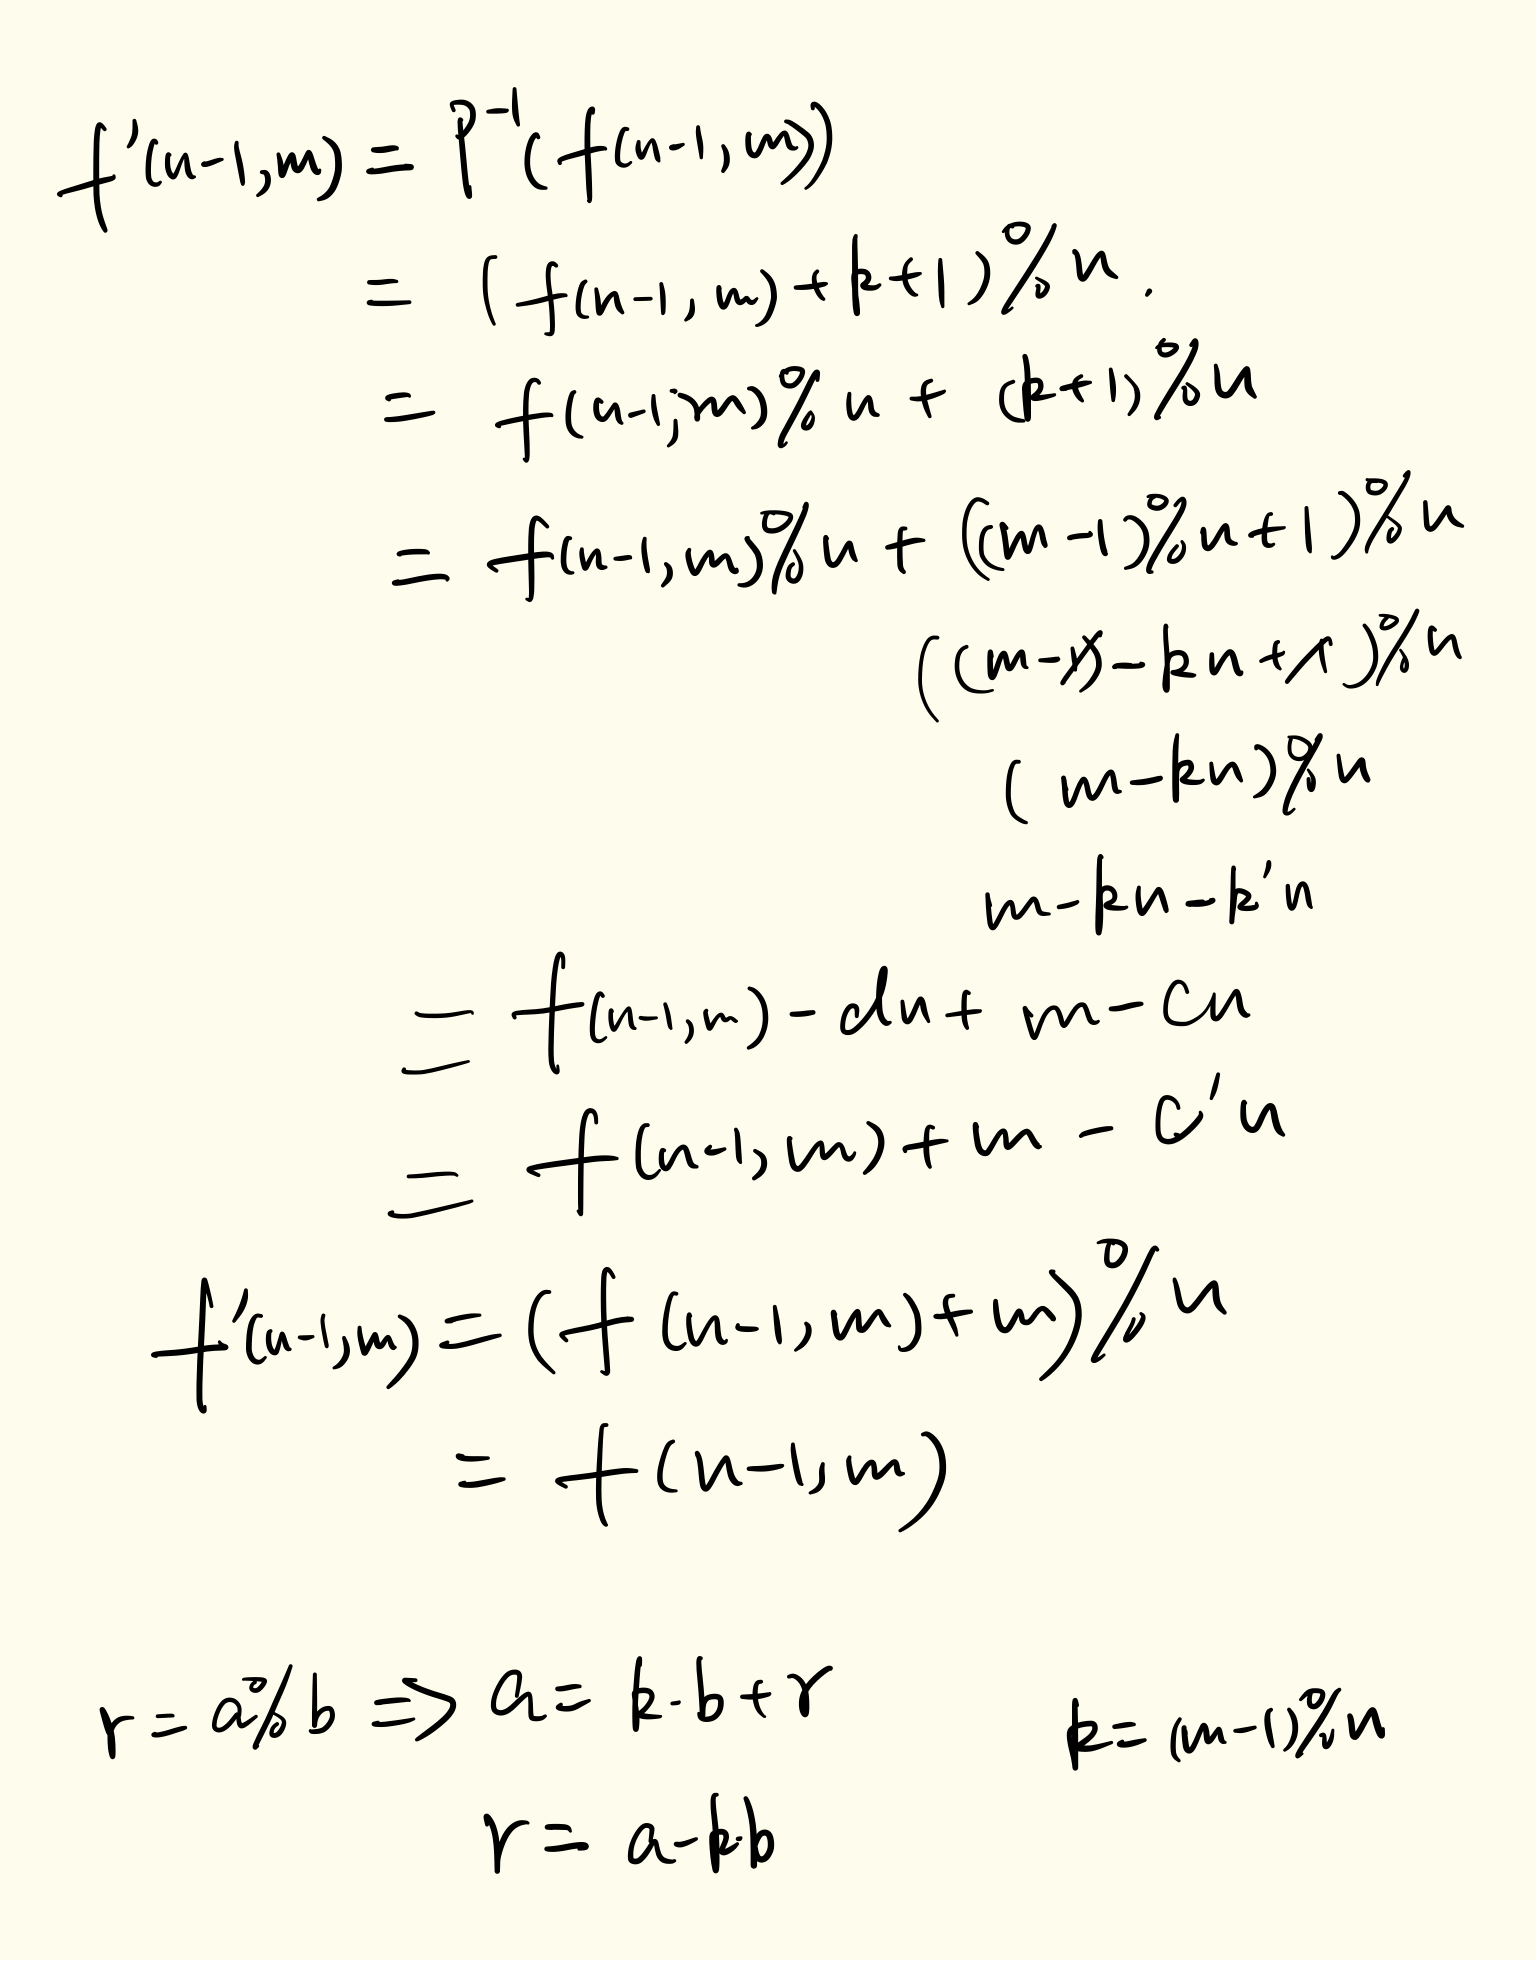 f'(n-1,m) = P⁻¹(f(n-1,m))
= (f(n-1,m)+k+1)%n.
= f(n-1,m)%n + (k+1)%n
= f(n-1,m)%n + ((m-1)%n+1)%n
((m-1)-kn+1)%n
(m-kn)%n
m-kn-k'n
= f(n-1,m)-dn+m-cn
= f(n-1,m)+m-c'n
f'(n-1,m) = (f(n-1,m)+m)%n
= f(n-1,m)
r=a%b => a=k·b+r
k=(m-1)%n
r=a-k·b